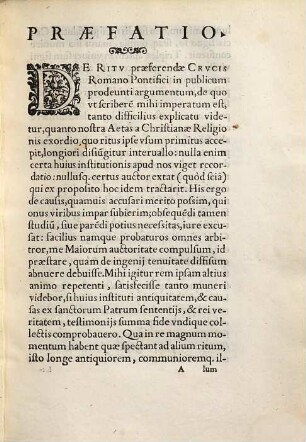 PRÆFATIO.
DE RITV præferendæ CRVCIS
Romano Pontifici in publicum
prodeunti argumentum, de quo
vt scriberē mihi imperatum est,
tanto difficilius explicatu vide
tur, quanto nostra Aetas a Christianæ Religio
nis exordio, quo ritus ipse vsum primitus acce
pit, longiori disiūgitur interuallo: nulla enim
certa huius institutionis apud nos viget recor
datio: nullusq. certus auctor extat (quòd sciā)
qui ex proposito hoc idem tractarit. His ergo
de causis, quamuis accusari merito possim, qui
onus viribus impar subierim; obsequēdi tamen
studiū, siue parēdi potius necessitas, iure excu-
sat: facilius namque probaturos omnes arbi-
tror, me Maiorum auctoritate compulsum, id
præstare, quam de ingenij tenuitate diffisum
abnuere debuisse. Mihi igitur rem ipsam altius
animo repetenti, satisfecisse tanto muneri
videbor, si huius instituti antiquitatem, & cau
sas ex sanctorum Patrum sententijs, & rei ve-
ritatem, testimonijs summa fide vndique col-
lectis comprobauero. Qua in re magnum mo-
mentum habent quæ spectant ad alium ritum,
isto longe antiquiorem, communioremq. il-
A lum